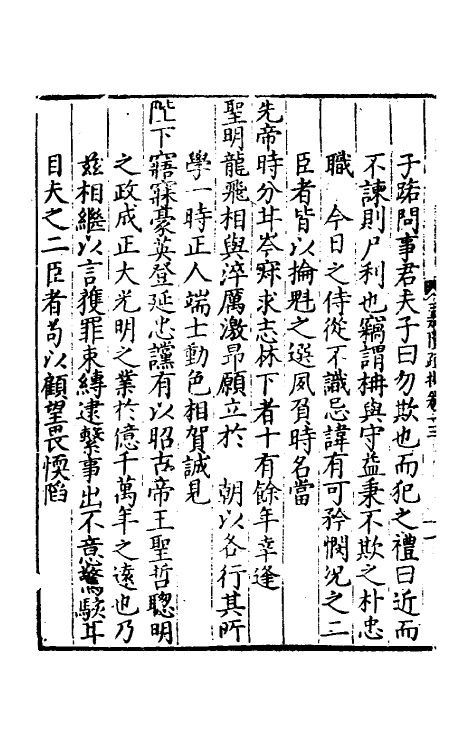 子路問事君夫子曰勿欺也而犯之禮曰近而
不諫則尸利也竊謂栴與守益秉不欺之朴忠
職　今日之侍從不識忌諱有可矜憫況之二
臣者皆以掄魁之選夙負時名當
先帝時分甘岑寂求志林下者十有餘年幸逢
聖明龍飛相與淬厲激昂願立於　朝以各行其所
學一時正人端士動色相賀誠見
陛下寤寐豪英登延忠讜有以昭古帝王聖哲聰明
之政成正大光明之業於億千萬年之遠也乃
茲相繼以言獲罪束縛逮繫事出不意驚駭耳
目夫之二臣者苟以顧望畏愞陷